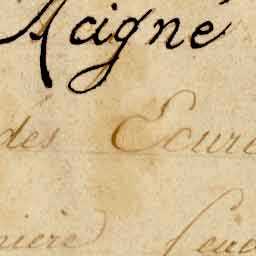 Acigné
des Ecuri
niere